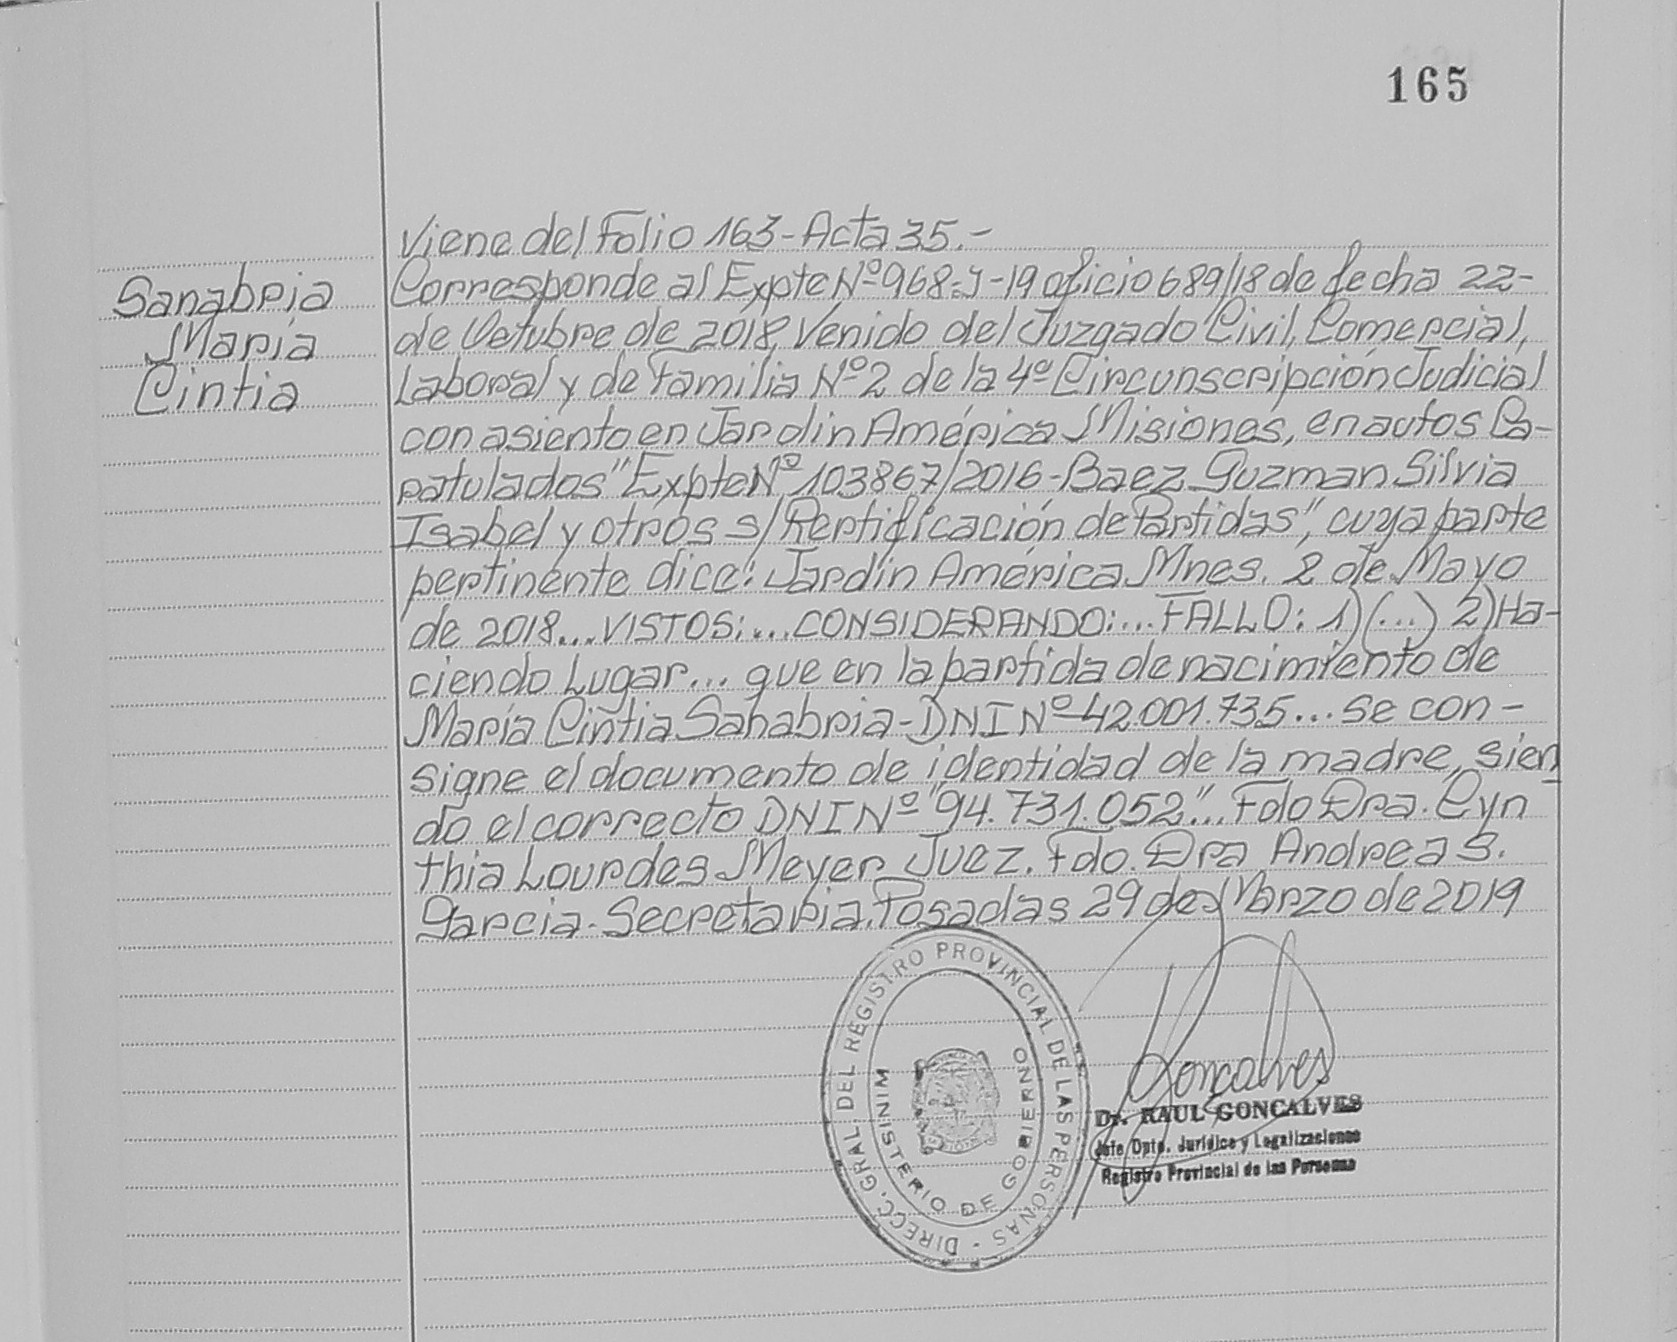 165
Viene del Folio 163-Acta 35.-
Sanabria
María
Cintia
Corresponde al Expte Nº 968-J-19 oficio 689/18 de fecha 22-
de Octubre de 2018, Venido del Juzgado Civil, Comercial,
Laboral y de Familia Nº 2 de la 4º Circunscripción Judicial
con asiento en Jardin América Misiones, en autos Ca-
ratulados "Expte Nº 103867/2016-Baez Guzman Silvia
Isabel y otros s/Rectificación de Partidas", cuya parte
pertinente dice: Jardín América Mnes. 2 de Mayo
de 2018...VISTOS:...CONSIDERANDO:...FALLO: 1)(...) 2)Ha-
ciendo Lugar... que en la partida de nacimiento de
María Cintia Sanabria-DNI Nº 42.001.735... se con-
signe el documento de identidad de la madre, sien
do el correcto DNI Nº "94.731.052"... Fdo Dra. Cyn
thia Lourdes Meyer Juez. Fdo. Dra Andrea S.
Garcia-Secretaria. Posadas 29 de Marzo de 2019
DIRECC. GRAL DEL REGISTRO PROVINCIAL DE LAS PERSONAS -
MINISTERIO DE GOBIERNO
Goncalves
Dr. RAUL GONCALVES
Jefe Dpto. Jurídico y Legalizaciones
Registro Provincial de las Personas